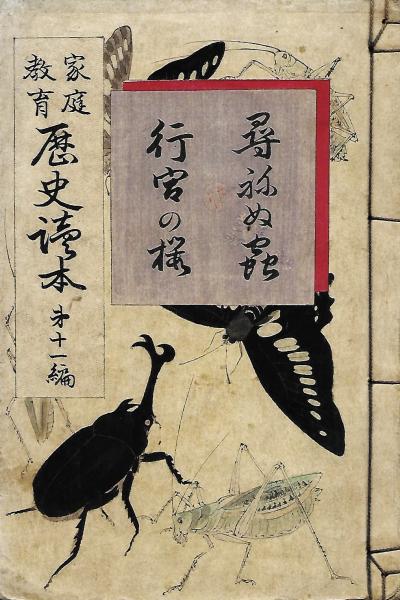 尋ねぬ蟲
行宮の櫻
家庭
教育
歴史讀本
第十一編